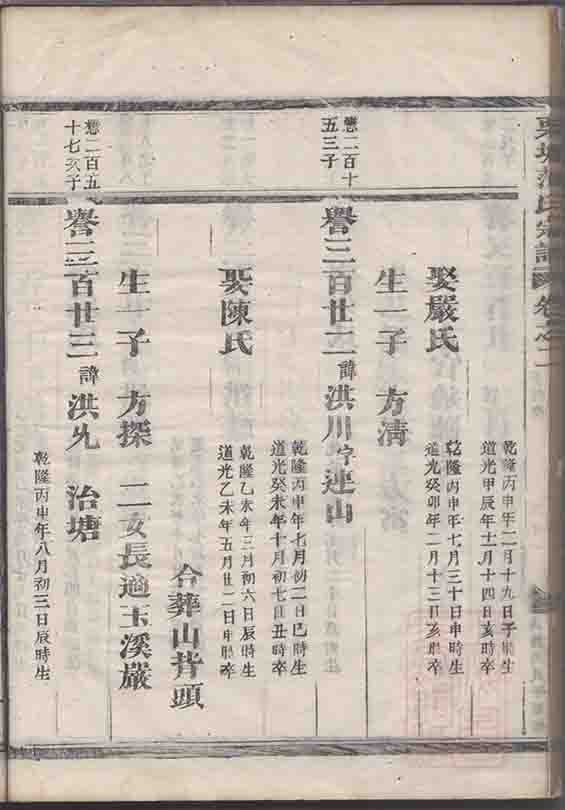 氏宗譜 卷之二
乾隆丙申年二月十九日子時生
道光甲辰年十一月十四日亥時卒
娶嚴氏
乾隆丙申年七月三十日申時生
道光癸卯年二月十三日亥時卒
生一子 方清
懋二百十五三子
譽三百廿二 諱洪川 字連山
乾隆丙申年七月初二日巳時生
道光癸未年十月初七日丑時卒
娶陳氏
乾隆乙未年三月初六日辰時生
道光乙未年五月廿二日申時卒
合葬山背頭
生一子 方探 二女長適玉溪嚴
懋二百五十七亥子
譽三百廿三 諱洪 治塘
乾隆丙申年八月初三日辰時生